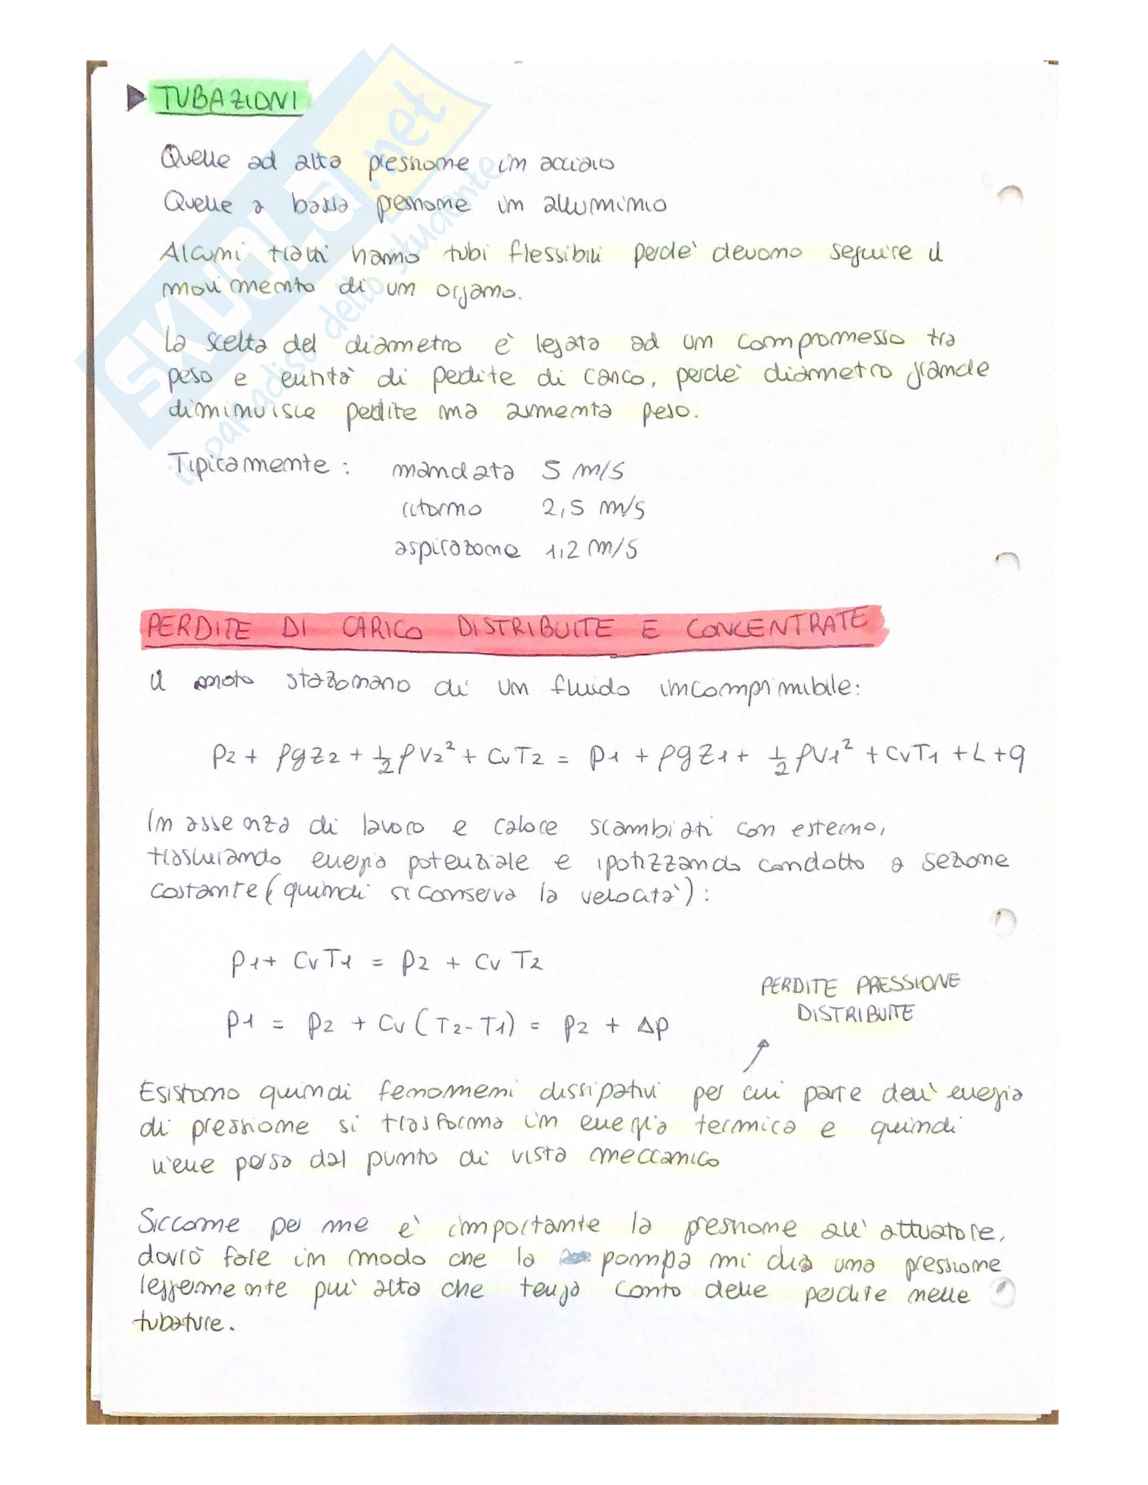 ▶ TUBAZIONI
Quelle ad alta pressione in acciaio
Quelle a bassa pressione in alluminio
Alcuni tratti hanno tubi flessibili perchè devono seguire il
movimento di un organo.
La scelta del diametro è legata ad un compromesso tra
peso e entità di perdite di carico, perchè diametro grande
diminuisce perdite ma aumenta peso.
Tipicamente: mandata 5 m/s
ritorno 2,5 m/s
aspirazione 1,2 m/s
PERDITE DI CARICO DISTRIBUITE E CONCENTRATE
Il moto stazionario di un fluido incomprimibile:
p2 + ρgz2 + 1/2 ρv2² + CvT2 = p1 + ρgz1 + 1/2 ρv1² + CvT1 + L + q
In assenza di lavoro e calore scambiati con esterno,
trascurando energia potenziale e ipotizzando condotto a sezione
costante (quindi si conserva la velocità):
p1 + CvT1 = p2 + CvT2
PERDITE PRESSIONE
DISTRIBUITE
p1 = p2 + Cv(T2-T1) = p2 + Δp
Esistono quindi fenomeni dissipativi per cui parte dell'energia
di pressione si trasforma in energia termica e quindi
viene persa dal punto di vista meccanico
Siccome per me è importante la pressione all'attuatore,
dovrò fare in modo che la pompa mi dia una pressione
leggermente più alta che tenga conto delle perdite nelle
tubature.
SKUOLA.net
il paradiso dello studente